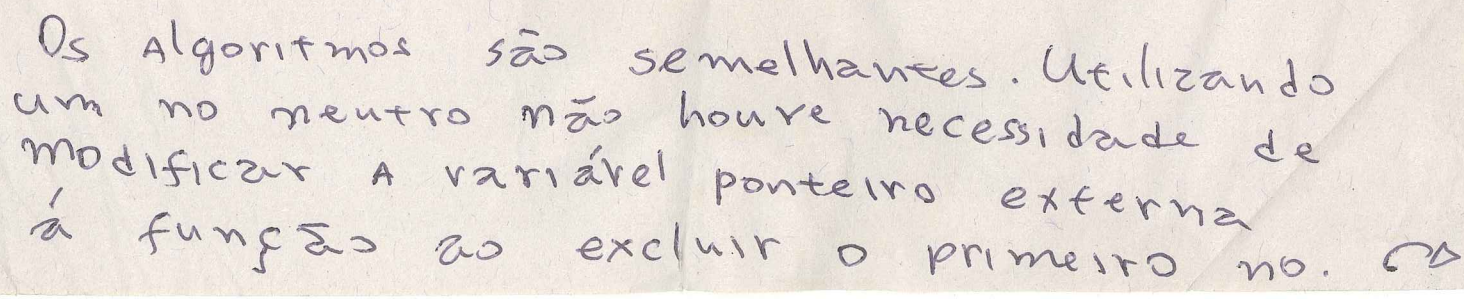 Os Algoritmos são semelhantes. Utilizando
um no neutro não houve necessidade de
modificar A variável ponteiro externa
á função ao excluir o primeiro no.